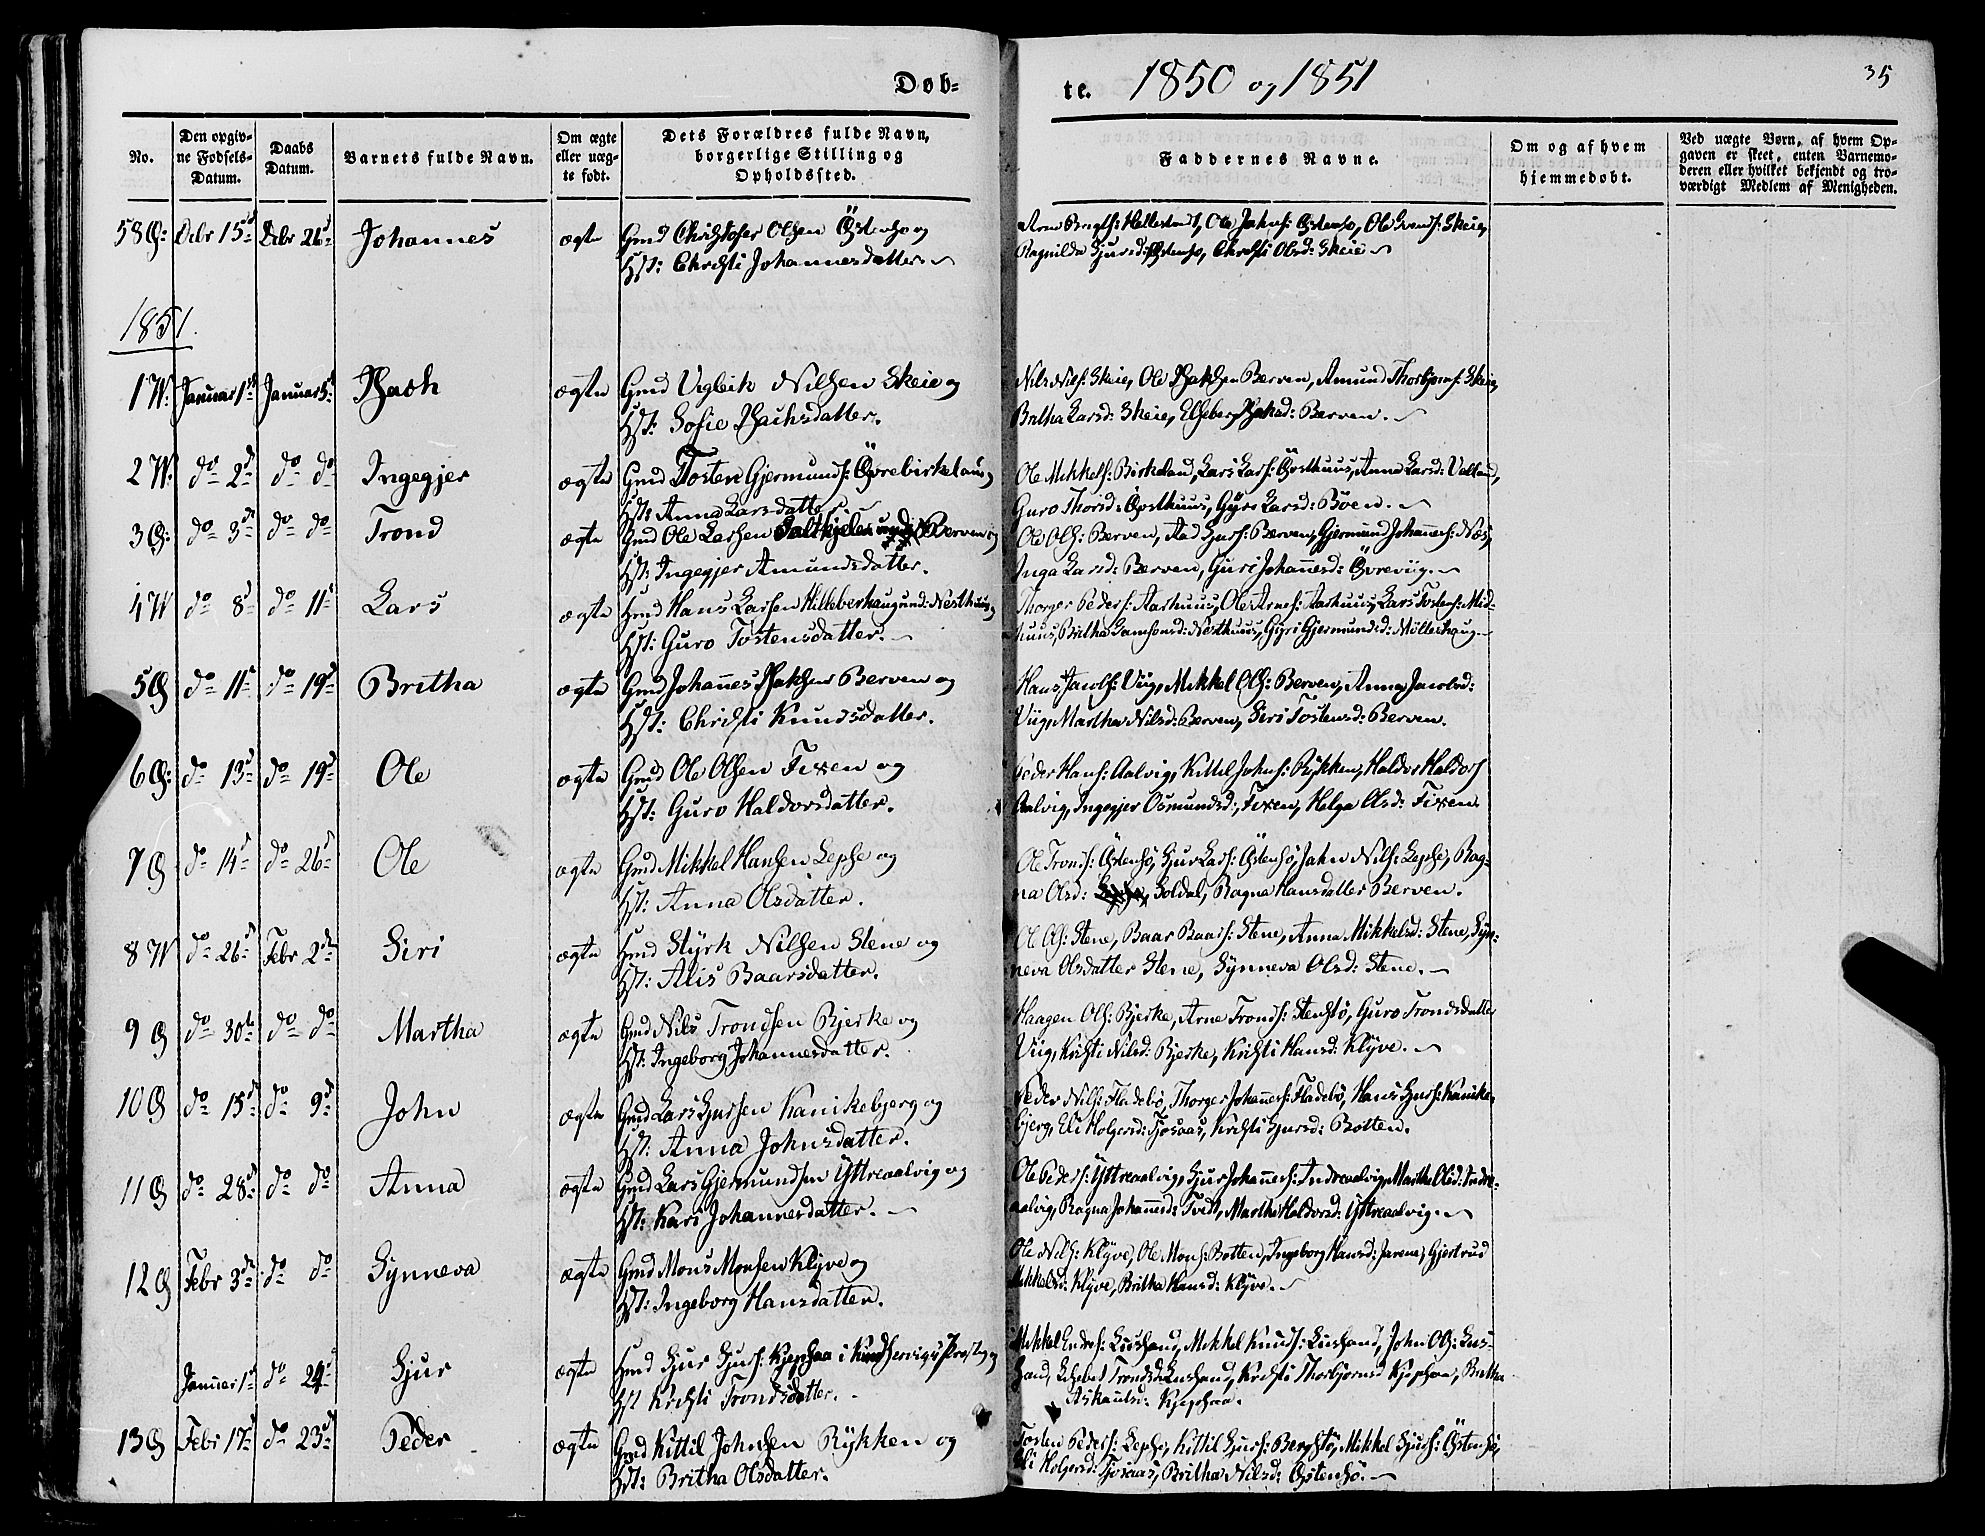 Dobte. 1850 og 1851
35
No.
Den opgivne Fodsels-Datum.
Daabs Datum.
Barnets fulde Navn.
Om ægte eller uægte født.
Dets Forældres fulde Navn, borgerlige Stilling og Opholdssted.
Faddernes Navne.
Om og af hvem hjemmedobt.
Ved uægte Børn, af hvem Opgaven er skeet, enten Barnemoderen eller hvilket bekjendt og troværdigt Medlem af Menigheden.
58 Decbr 15de Decbr 26de Johannes ægte Gmd Christofer Olsen Östensø og
Hst: Christi Johannesdatter.
Ole Johns: Östensø, Ole Svends: Skeie,
Ragnilda Sjursd: Östensø, Christi Olsd: Skeie
1851
1 Januar 1ste Januar 5te ægte Gmd Vigleik Nilsen Skeie og
Hst: Sofie
Nils Nils: Skeie, Ole Berven, Amund Thorbjørns: Skeie,
Britha Larsd: Skeie, Berven.
2 do 2de do do Ingegjer ægte Gmd Tosten Gjermunds: Övrebirkeland og
Hst: Anna Larsdatter.
Ole Mikkels: Birkeland, Lars Lars: Östhuus, Anna Larsd: Valland,
Guro Thorsd: Östhuus, Gyri Larsd: Böen.
3 do 3de do do Trond ægte Gmd Ole Larsen Berven og
Hst: Ingegjer Amundsdatter.
Ole Ols: Berven, Aad Sjurs: Berven, Gjermund Johannes: Næs,
Inga Larsd: Berven, Guri Johannesd: Övreviig.
4 do 8de do 11te Lars ægte Hmd Hans Larsen Hilleberhaug und: Nesthuus og
Hst: Guro Tostensdatter.
Thorger Peders: Aarhuus, Ole Arnes: Aarhuus, Lars Tostens: Mid-
huus, Britha Samsonsd: Nesthuus, Gyri Gjermundsd: Möllerhaug
5 do 11te do 19de Britha ægte Gmd Johannes Berven og
Hst: Christi Knudsdatter.
Hans Jacobs: Viig, Mikkel Ols: Berven, Anna Jacobsd:
Viig, Martha Nilsd: Berven, Siri Tostensd: Berven.
6 do 13de do 19de Ole ægte Gmd Ole Olsen Fixen og
Hst: Guro Haldorsdatter.
Peder Hans: Aalvig, Kittil Johns: Rykken, Haldor Haldors
Aalvig, Ingegjer Osmundsd: Fixen, Helga Olsd: Fixen.
7 do 14de do 26de Ole ægte Gmd Mikkel Hansen Lepse og
Hst: Anna Olsdatter.
Ole Tronds: Östensö, Sjur Lars: Östensö, John Nils: Lepse, Rag-
na Olsd: Soldal, Ragna Hansdatter Berven.
8 do 26de Febr 2den Siri ægte Hmd Styrk Nilsen Stene og
Hst: Alis Baarsdatter.
Ole Ols: Stene, Baar Baars: Stene, Anna Mikkelsd: Stene, Syn-
neva Olsdatter Stene, Synneva Olsd: Stene.
9 do 30te do do Martha ægte Gmd Nils Trondsen Bjerke og
Hst: Ingeborg Johannesdatter.
Haagen Ols: Bjerke, Arne Tronds: Stensö, Guro Trondsdatter
Viig, Kristi Nilsd: Bjerke, Kristi Hansd: Klyve.
10 do 15de do 9de John ægte Gmd Lars Sjursen Kanikebjerg og
Hst: Anna Johnsdatter.
Peder Nils: Fladebö, Thorger Johannes: Fladebö, Hans Sjurs: Kanike-
bjerg, Eli Holgersd: Tjosaas, Kristi Sjursd: Botten.
11 do 28de do do Anna ægte Gmd Lars Gjermundsen Yttreaalvig og
Hst: Kari Johannesdatter.
Ole Peders: Yttreaalvig, Sjur Johannes: Indreaalvig, Martha Olsd: Indre-
aalvig, Ragna Johannesd: Tvedt, Martha Haldorsd: Yttreaalvig.
12 Febr 3de do do Synneva ægte Gmd Mons Monsen Klyve og
Hst: Ingeborg Hansdatter.
Ole Nils: Klyve, Ole Mons: Botten, Ingeborg Hansd: Gjertrud
Mikkelsd: Klyve, Britha Hansd: Klyve.
Januar 1ste do 24de Sjur ægte Hmd Sjur Sjurs: i og
Hst Kristi Trondsdatter.
Mikkel Endres: Mikkel Knuds: John Ols:
Trondsd: Kristi Thorbjørnsd Britha
13 Febr 17de do 23de Peder ægte Gmd Kittil Johnsen Rykken og
Hst: Britha Olsdatter.
Tosten Peders: Lepse, Kittil Sjurs: Bergstö, Mikkel Sjurs: Östensö,
Eli Holgersd: Tjosaas, Britha Nilsd: Östensö.